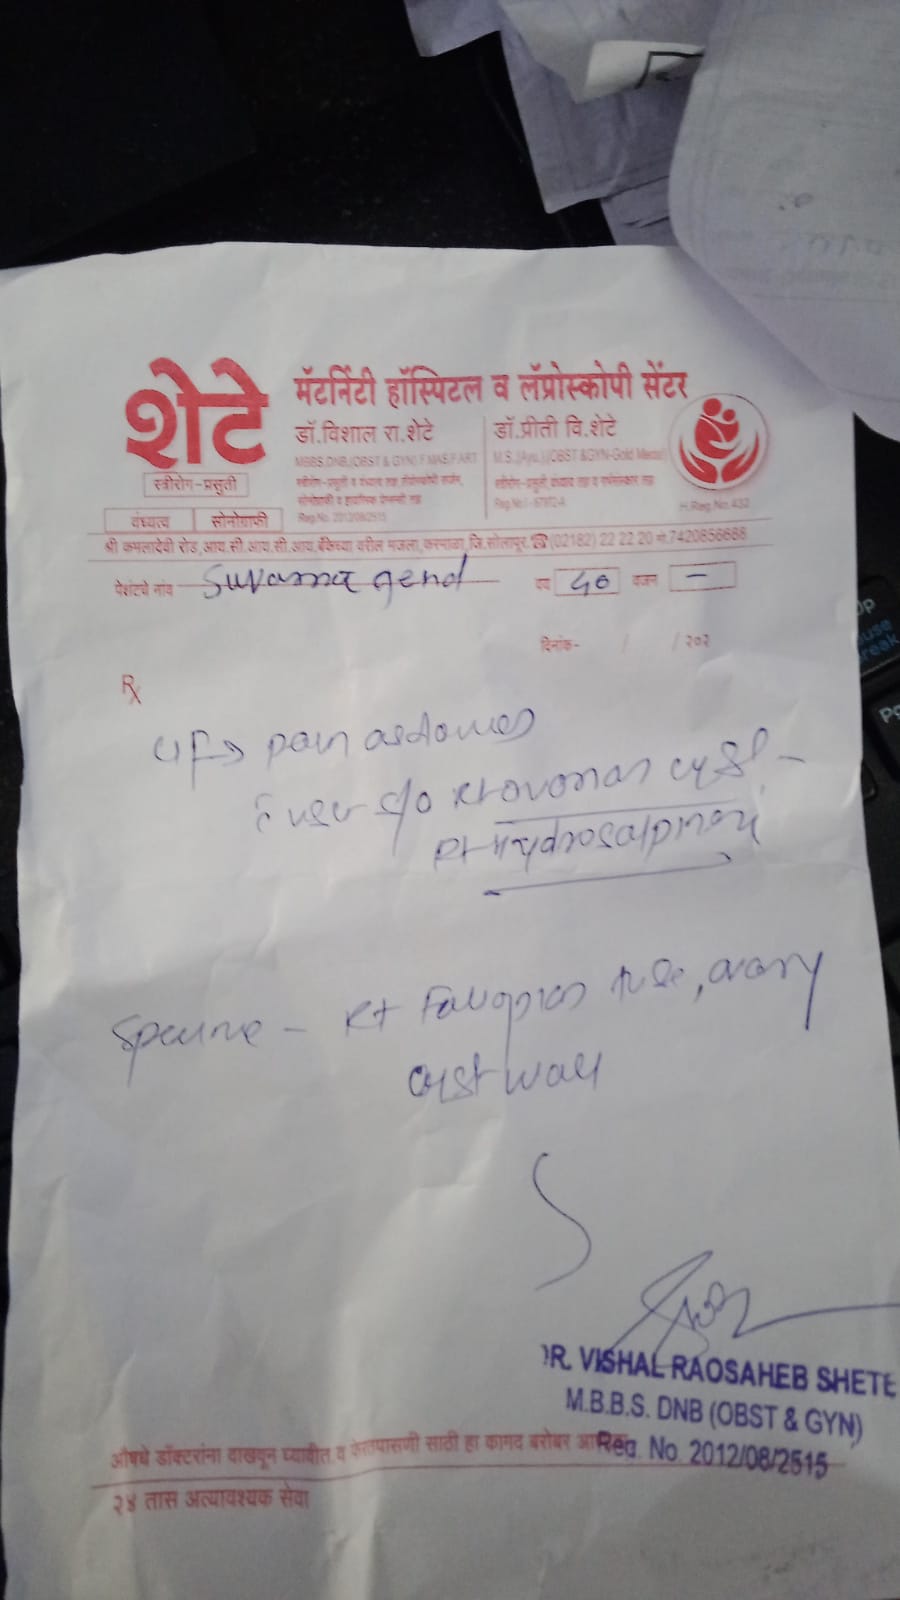 शेटे
मॅटर्निटी हॉस्पिटल व लॅप्रोस्कोपी सेंटर
डॉ.विशाल रा.शेटे
MBBS,DNB,(OBST & GYN) F.MAS,F.ART
स्त्रीरोग-प्रसुती व वंध्यत्व तज्ञ, लॅप्रोस्कोपी सर्जन,
सोनोग्राफी व हायरिस्क प्रेग्नन्सी तज्ञ
Reg.No. 2012/08/2515
डॉ.प्रीती वि.शेटे
M.S.(Ayu.) (OBST &GYN-Gold Medal)
स्त्रीरोग-प्रसुती, वंध्यत्व तज्ञ व गर्भसंस्कार तज्ञ
H.Reg.No.432
स्त्रीरोग-प्रसुती
वंध्यत्व सोनोग्राफी
श्री कमलादेवी रोड,आय.सी.आय.सी.आय.बँकेच्या वरील मजला,करमाळा,जि.सोलापूर.☎(02182) 22 22 20 मो.7420856688
पेशंटचे नांव Suvarna gend वय 40 वजन -
दिनांक- / / २०२
Rx
pain abdomen
c USG s/o Rt ovarian cyst -
Rt Hydrosalpinx
Rt Fallopian tube, ovary
cyst wall
DR. VISHAL RAOSAHEB SHETE
M.B.B.S. DNB (OBST & GYN)
Reg. No. 2012/08/2515
औषधे डॉक्टरांना दाखवून घ्यावीत व फेरतपासणी साठी हा कागद बरोबर
२४ तास अत्यावश्यक सेवा